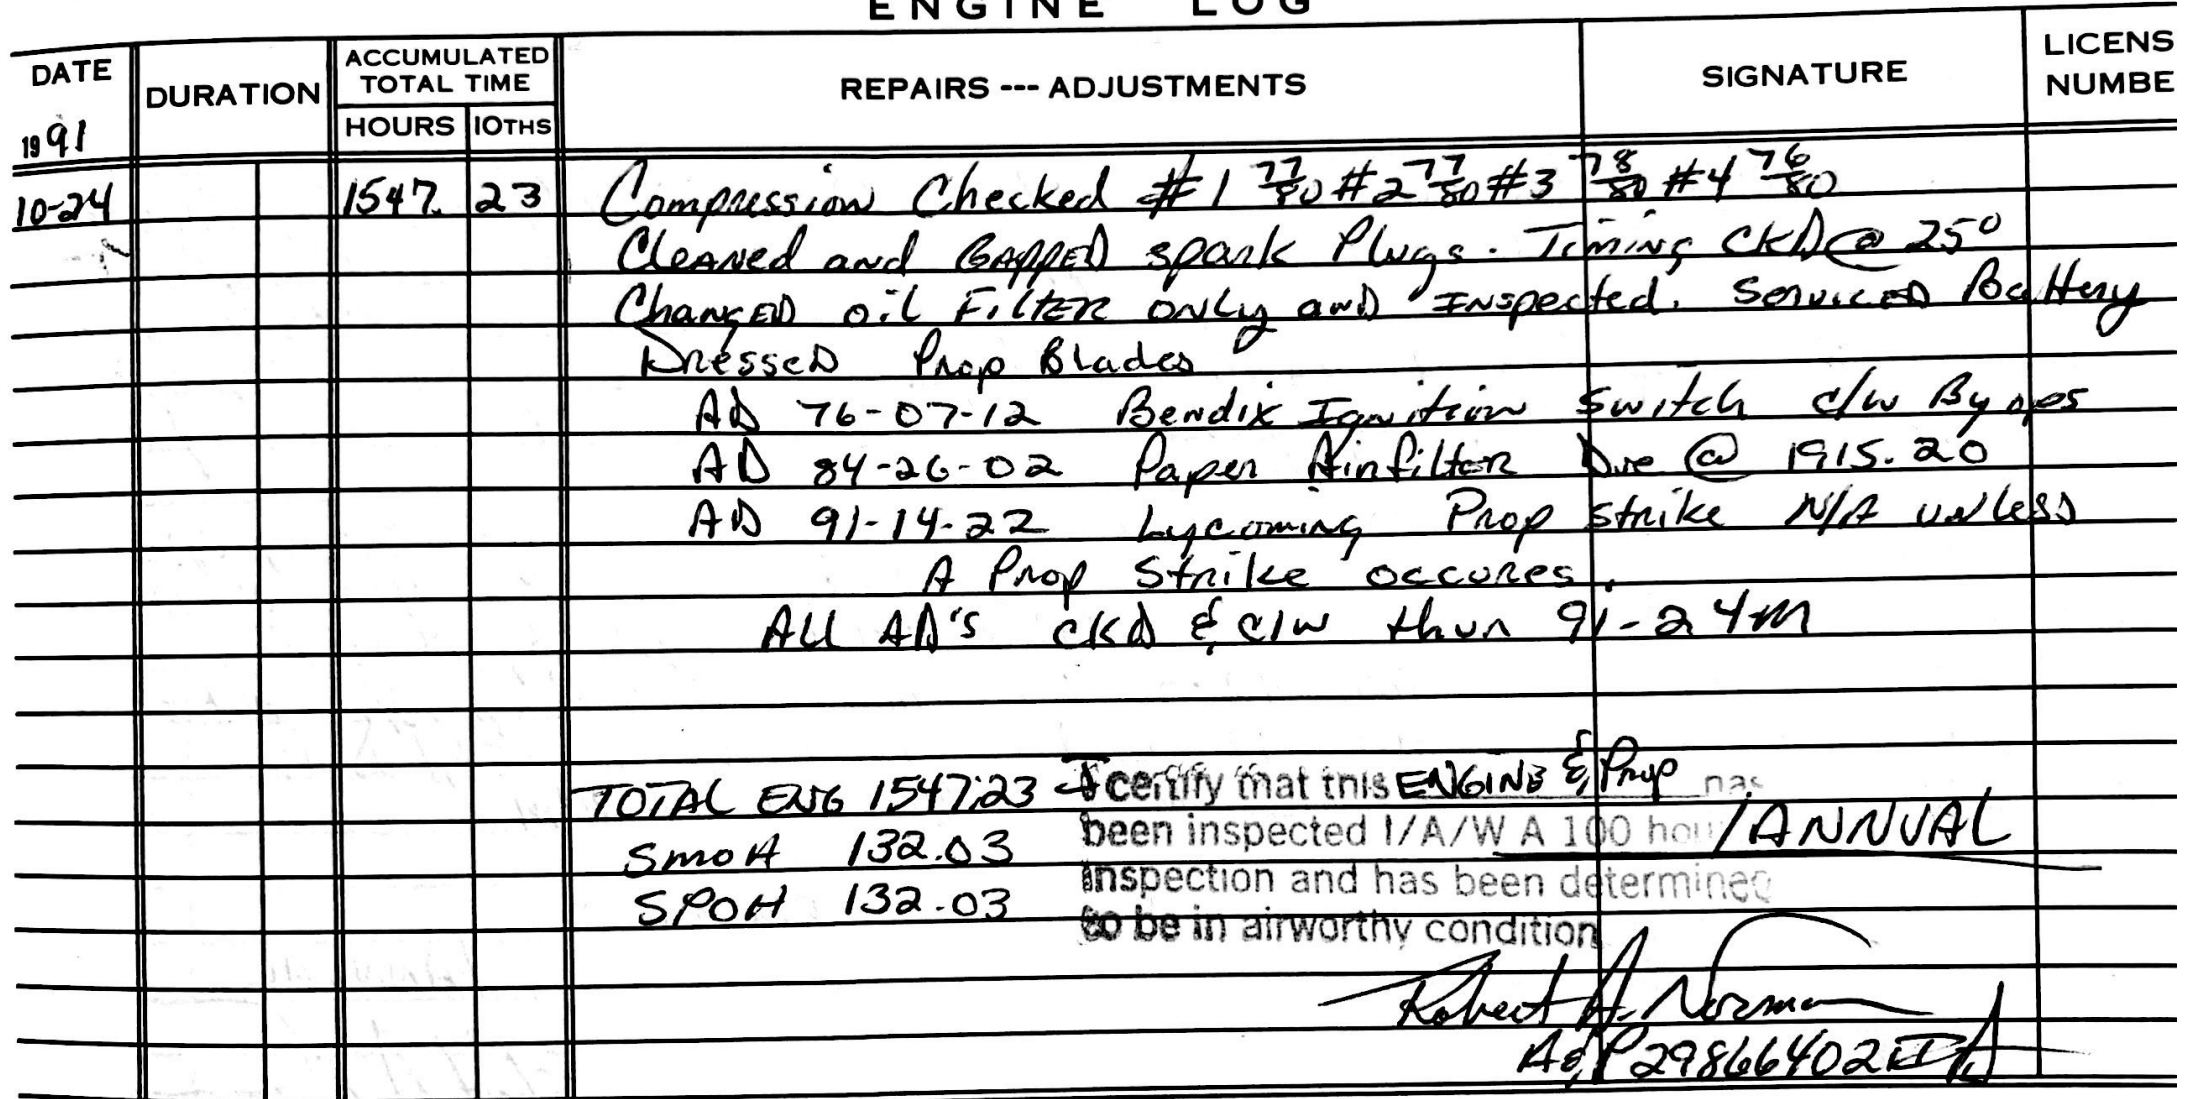 ENGINE LOG
DATE
1991
DURATION
ACCUMULATED
TOTAL TIME
HOURS 10THS
REPAIRS --- ADJUSTMENTS
SIGNATURE
LICENS
NUMBE
10-24 1547. 23 Compression Checked #1 77/80 #2 77/80 #3 78/80 #4 76/80
Cleaned and Gapped spark Plugs. Timing CKD @ 25°
Changed oil Filter only and Inspected. Serviced Battery
Dressed Prop Blades
AD 76-07-12 Bendix Ignition Switch c/w By ops
AD 84-26-02 Paper Airfilter Due @ 1915.20
AD 91-14-22 Lycoming Prop strike N/A unless
A Prop Strike occures.
ALL AD's CKD & C/W thur 91-24
TOTAL ENG 1547.23 I certify that this ENGINE & Prop has
SMOH 132.03 been inspected I/A/W A 100 hou /ANNUAL
SPOH 132.03 inspection and has been determined
to be in airworthy condition
Robert A. Norman
A&P 29866402 IA